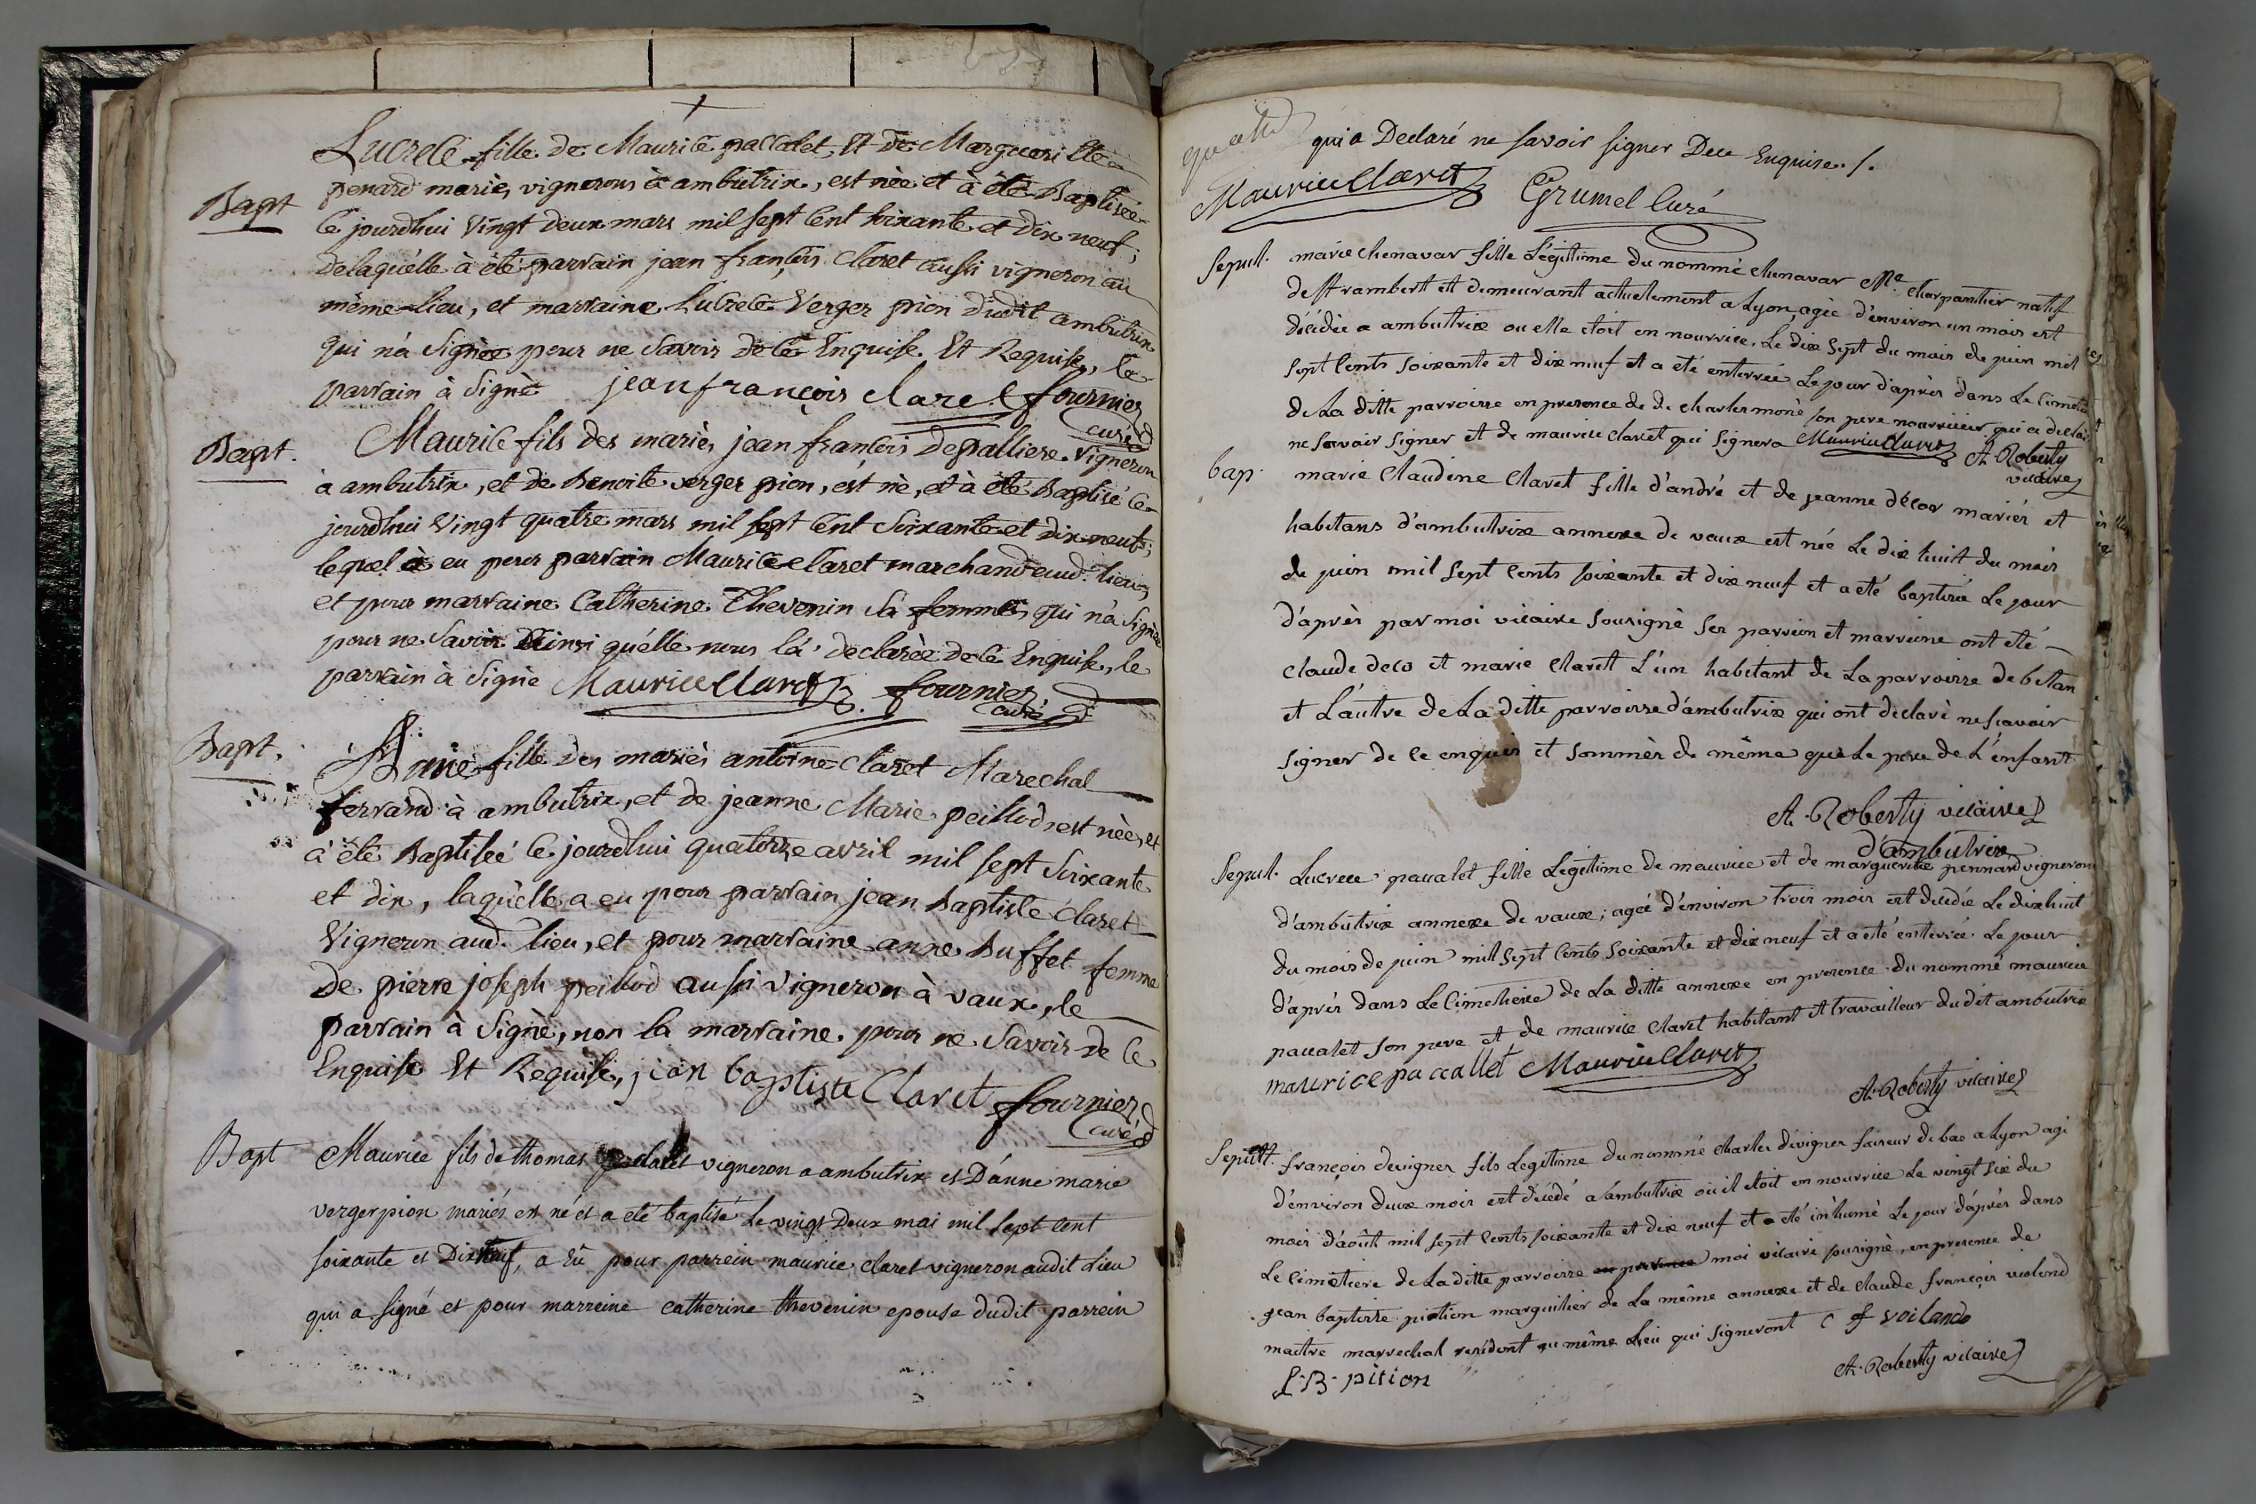 Lucrece fille de Maurice paccalet, Et de Margueritte
Bapt penard mariés, vignerons à ambutrix, est née et à été Baptisée
Ce jourdhui Vingt deux mars mil sept Cent soixante et dix neuf;
delaquélle à été parrain jean françois Claret aussi vigneron au
même lieu, et marraine Lucrece Verger pion dudit ambutrix
qui n'à Signée pour ne Savoir de Ce Enquise. Et Requise, le
parrain à Signé jean françois claret fournier
curé
Bapt. Maurice fils des mariés jean françois depalliere Vigneron
à ambutrix, et de Benoite verger pion, ést né, et à été Baptisé Ce
jourdhui Vingt quatre mars mil sept Cent Soixante et dix neuf;
lequel à eu pour parrain Maurice Claret marchand aud. lieu,
et pour marraine Catherine Thevenin Sa femme, qui n'a Signée
pour ne Savoir Ainsi qu'élle nous la' declarée de Ce Enquise, le
parrain à Signé Maurice Claret fournier
curé
Bapt. fille des mariés antoine Claret Marechal
ferrand à ambutrix, et de jeanne Marie peillod, est née, et
à été Baptisée Ce jourdhui quatorze avril mil sept Soixante
et dix, laquélle a eu pour parrain jean Baptiste Claret
Vigneron aud. lieu, et pour marraine anne Buffet femme
de pierre joseph peillod aussi Vigneron à vaux, le
parrain à Signé, non la marraine. pour ne Savoir de Ce
Enquise Et Requise, jean baptiste Claret fournier
curé
Bapt Maurice fils de thomas vigneron a ambutrix et D'anne marie
vergerpion mariés est né et a eté baptisé Le vingt Deux mai mil Sept cent
soixante et Dixneuf, a Eû pour parrein maurice claret vigneron audit Lieu
qui a signé et pour marreine catherine thevenin epouse dudit parrein
qui a Declaré ne savoir signer Dece Enquise./.
Maurice Claret Grumel Curé
Sepult. marie chenavar fille Légitime du nommé chenavar Me charpantier natif
de St rambert et demeurant actuelement a Lyon, agée d'environ un mois est
décédée a ambutrix ou elle etoit en nourrice, Le dix Sept du mois de juin mil
sept Cents soixante et dix neuf et a eté enterrée Le jour d'après dans Le Cimetie
de La ditte parroisse en presence de de charles moné son pere nourricier qui a declar
ne savoir signer et de maurice claret qui signera Maurice Claret A. Roberty
vicaire
bap. marie Claudine Claret fille d'andré et de jeanne décor mariés et
habitans d'ambutrix annexe de vaux est née Le dix huit du mois
de juin mil sept Cents soixante et dix neuf et a eté baptisée Le jour
d'après par moi vicaire sousigné ses parrein et marreine ont eté
Claude deco et marie Claret L'un habitant de La parroisse de bettan
et L'autre de La ditte parroisse d'ambutrix qui ont declaré ne scavoir
signer de ce enquis et sommés de même que Le pere de L'enfant
A. Roberty vicaire
d'ambutrix
Sepul. Lucrece paccalet fille Légitime de maurice et de marguerite pennard vignerons
d'ambutrix annexe de vaux; agée d'environ trois mois est decédée Le dixhuit
du mois de juin mil Sept Cents soixante et dix neuf et a eté enterrée Le jour
d'après dans Le Cimetiere de La ditte annexe en presence du nommé maurice
paccalet son pere et de maurice Claret habitant et travailleur dudit ambutrix
maurice paccallet Maurice Claret
A. Roberty vicaire
Sepult. françois devigner fils Legitime du nommé Charles devigner faiseur de bas a Lyon agé
d'environ deux mois est décédé a ambutrix où il etoit en nourrice Le vingt six du
mois d'août mil sept Cents soixante et dix neuf et a eté inhumé Le jour d'après dans
Le Cimetiere de La ditte parroisse en presence moi vicaire sousigné, en presence de
jean baptiste pition marguilier de La même annexe et de Claude françois violand
maitre marrechal residant au même Lieu qui signeront C f voiland
J. B. pition A. Roberty vicaire